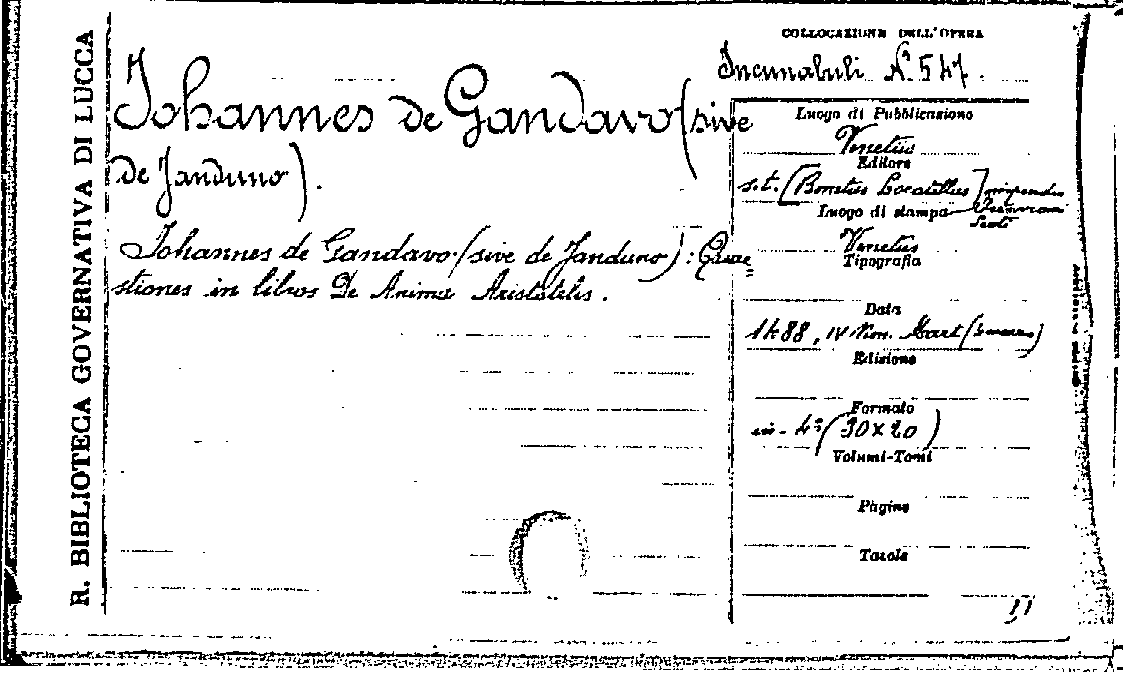 R. BIBLIOTECA GOVERNATIVA DI LUCCA
Johannes de Gandavo (sive
de Janduno).
Johannes de Gandavo (sive de Janduno): Quae=
stiones in libros De Anima Aristotelis.
COLLOCAZIONE DELL'OPERA
Incunabuli N.º 547.
Luogo di Pubblicazione
Venetiis
Editore
s. t. [Bonetus Locatellus]
Luogo di stampa
Venetiis
Tipografia
Data
1488, IV Non. Mart
Edizione
Formato
in-4º (30x20)
Volumi-Tomi
Pagine
Tavole